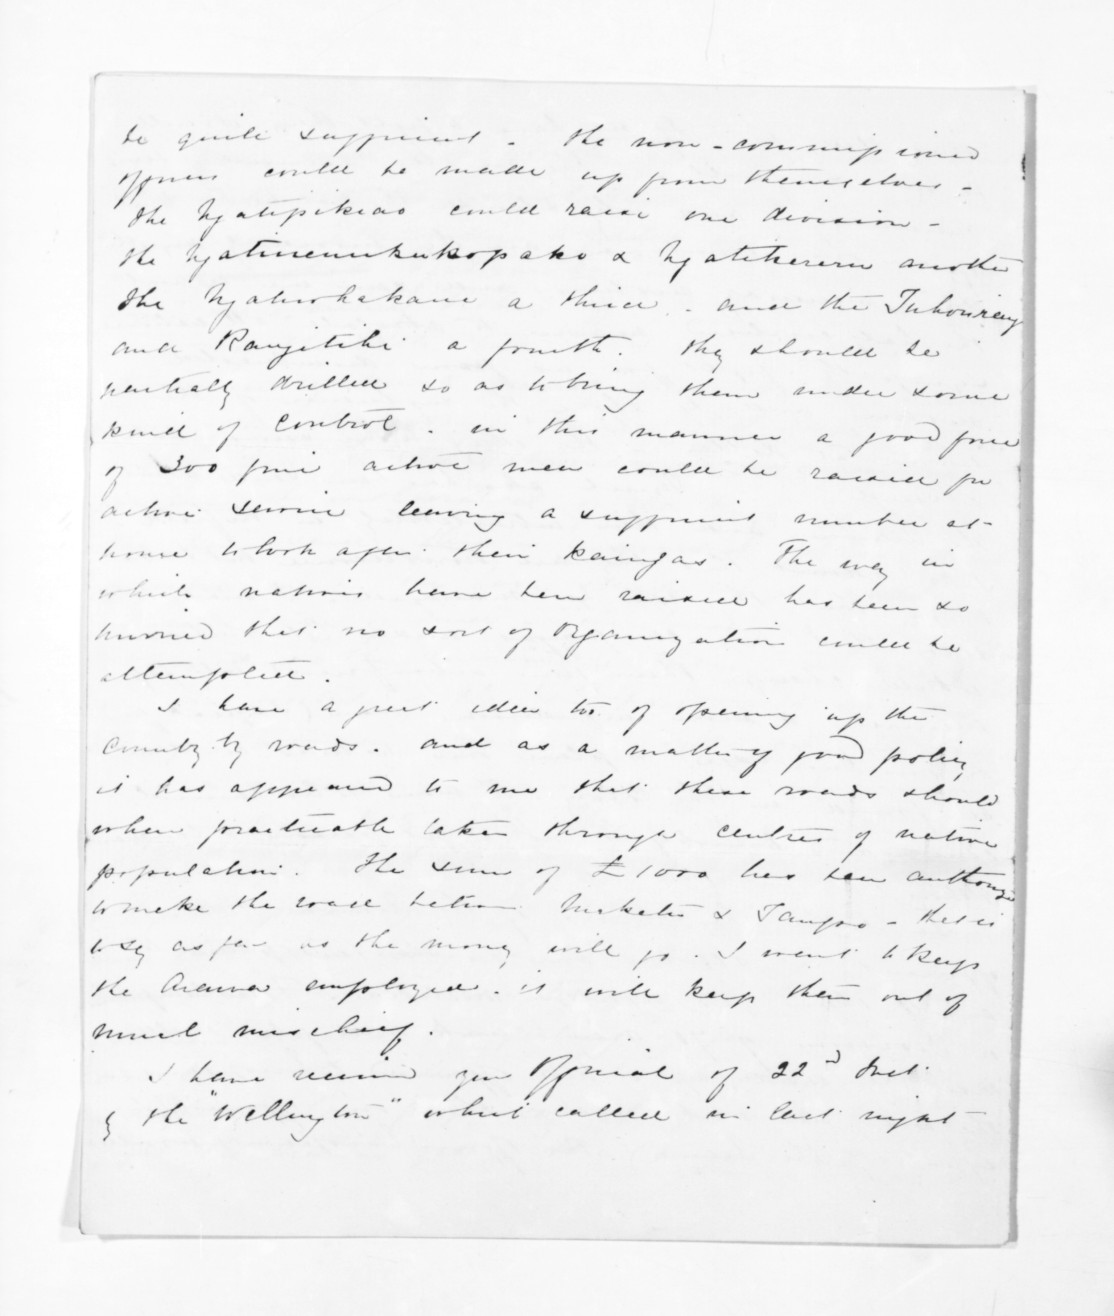 be quite sufficient - the non-commissioned
officers could be made up from themselves -
the Ngatipikiao could raise one division -
the Ngatinenukukopako & Ngatitererur another
the Ngatiwhakaue a third - and the Tuhourangi
and Rangitihi a fourth. they should be
partially drilled so as to bring them under some
kind of control. in this manner a good force
of 300 fine active men could be raised for
active service leaving a sufficient number at
home to look after their kaingas. The way in
which natives have been raised has been so
hurried that no sort of organization could be
attempted.
I have a great idea too of opening up the
country by roads. and as a matter of good policy
it has appeared to me that these roads should
when practicable taken through centres of native
population. The sum of £1000 has been authorized
to make the road between Maketu & Taupo - that is
to say as far as the money will go. I want to keep
the Arawa employed. it will keep them out of
much mischief.
I have received your Official of 22d Inst
by the "Wellington" which called in last night